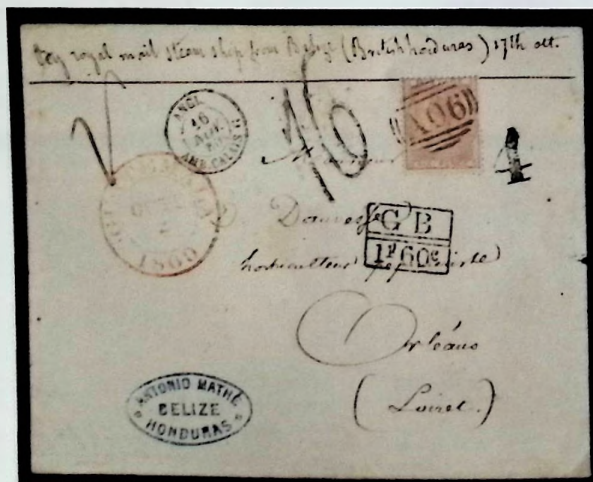 Per royal mail steam ship from Belize (British hondures) 17th oct.
ANGL.
AMB. CALAIS
16
A06
4
Monsieur
Dauvesse
GB
1F60c
horticulteur pépiniériste
Orléans
(Loiret.)
ANTONIO MATHÉ
BELIZE
HONDURAS